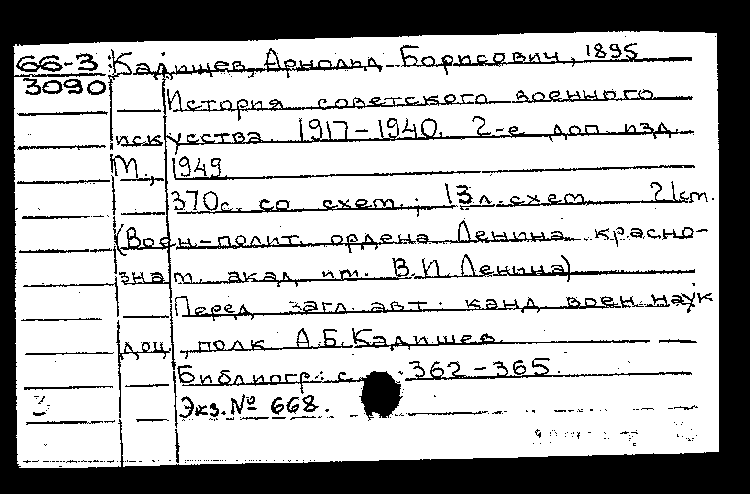 66-3 Кадишев, Арнольд Борисович, 1895
3090
История советского военного
искусства 1917-1940. 2-е доп изд.
М., 1949
370с. со схем.; 13 л. схем 21см.
(Воен-полит. ордена Ленина красно-
знам. акад им. В.И. Ленина)
Перед загл. авт. канд воен. наук
доц., полк А.Б. Кадишев.
Библиогр.: с. 362-365.
3 Экз. № 668.